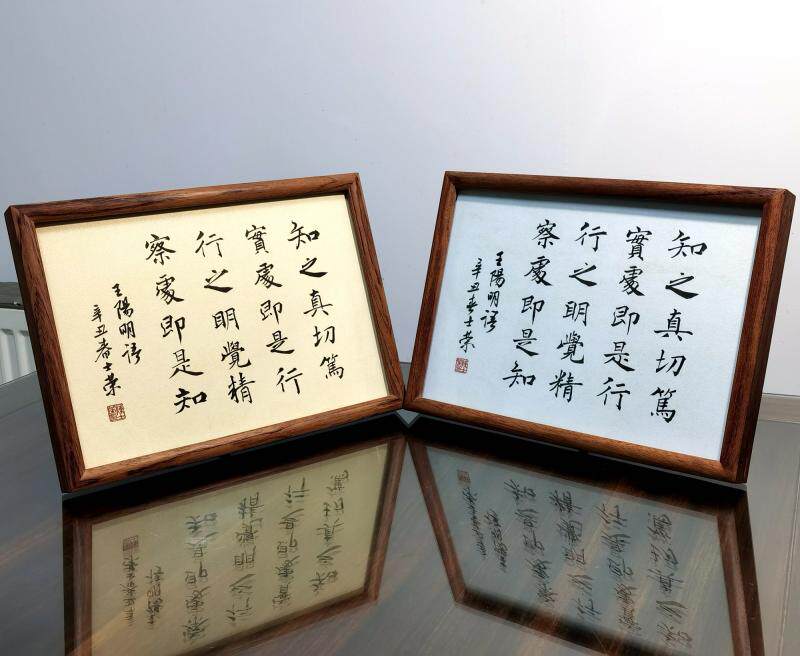 知之真切篤
實處即是行
行之明覺精
察處即是知
王陽明語
辛丑春士荣
知之真切篤
實處即是行
行之明覺精
察處即是知
王陽明語
辛丑春士荣